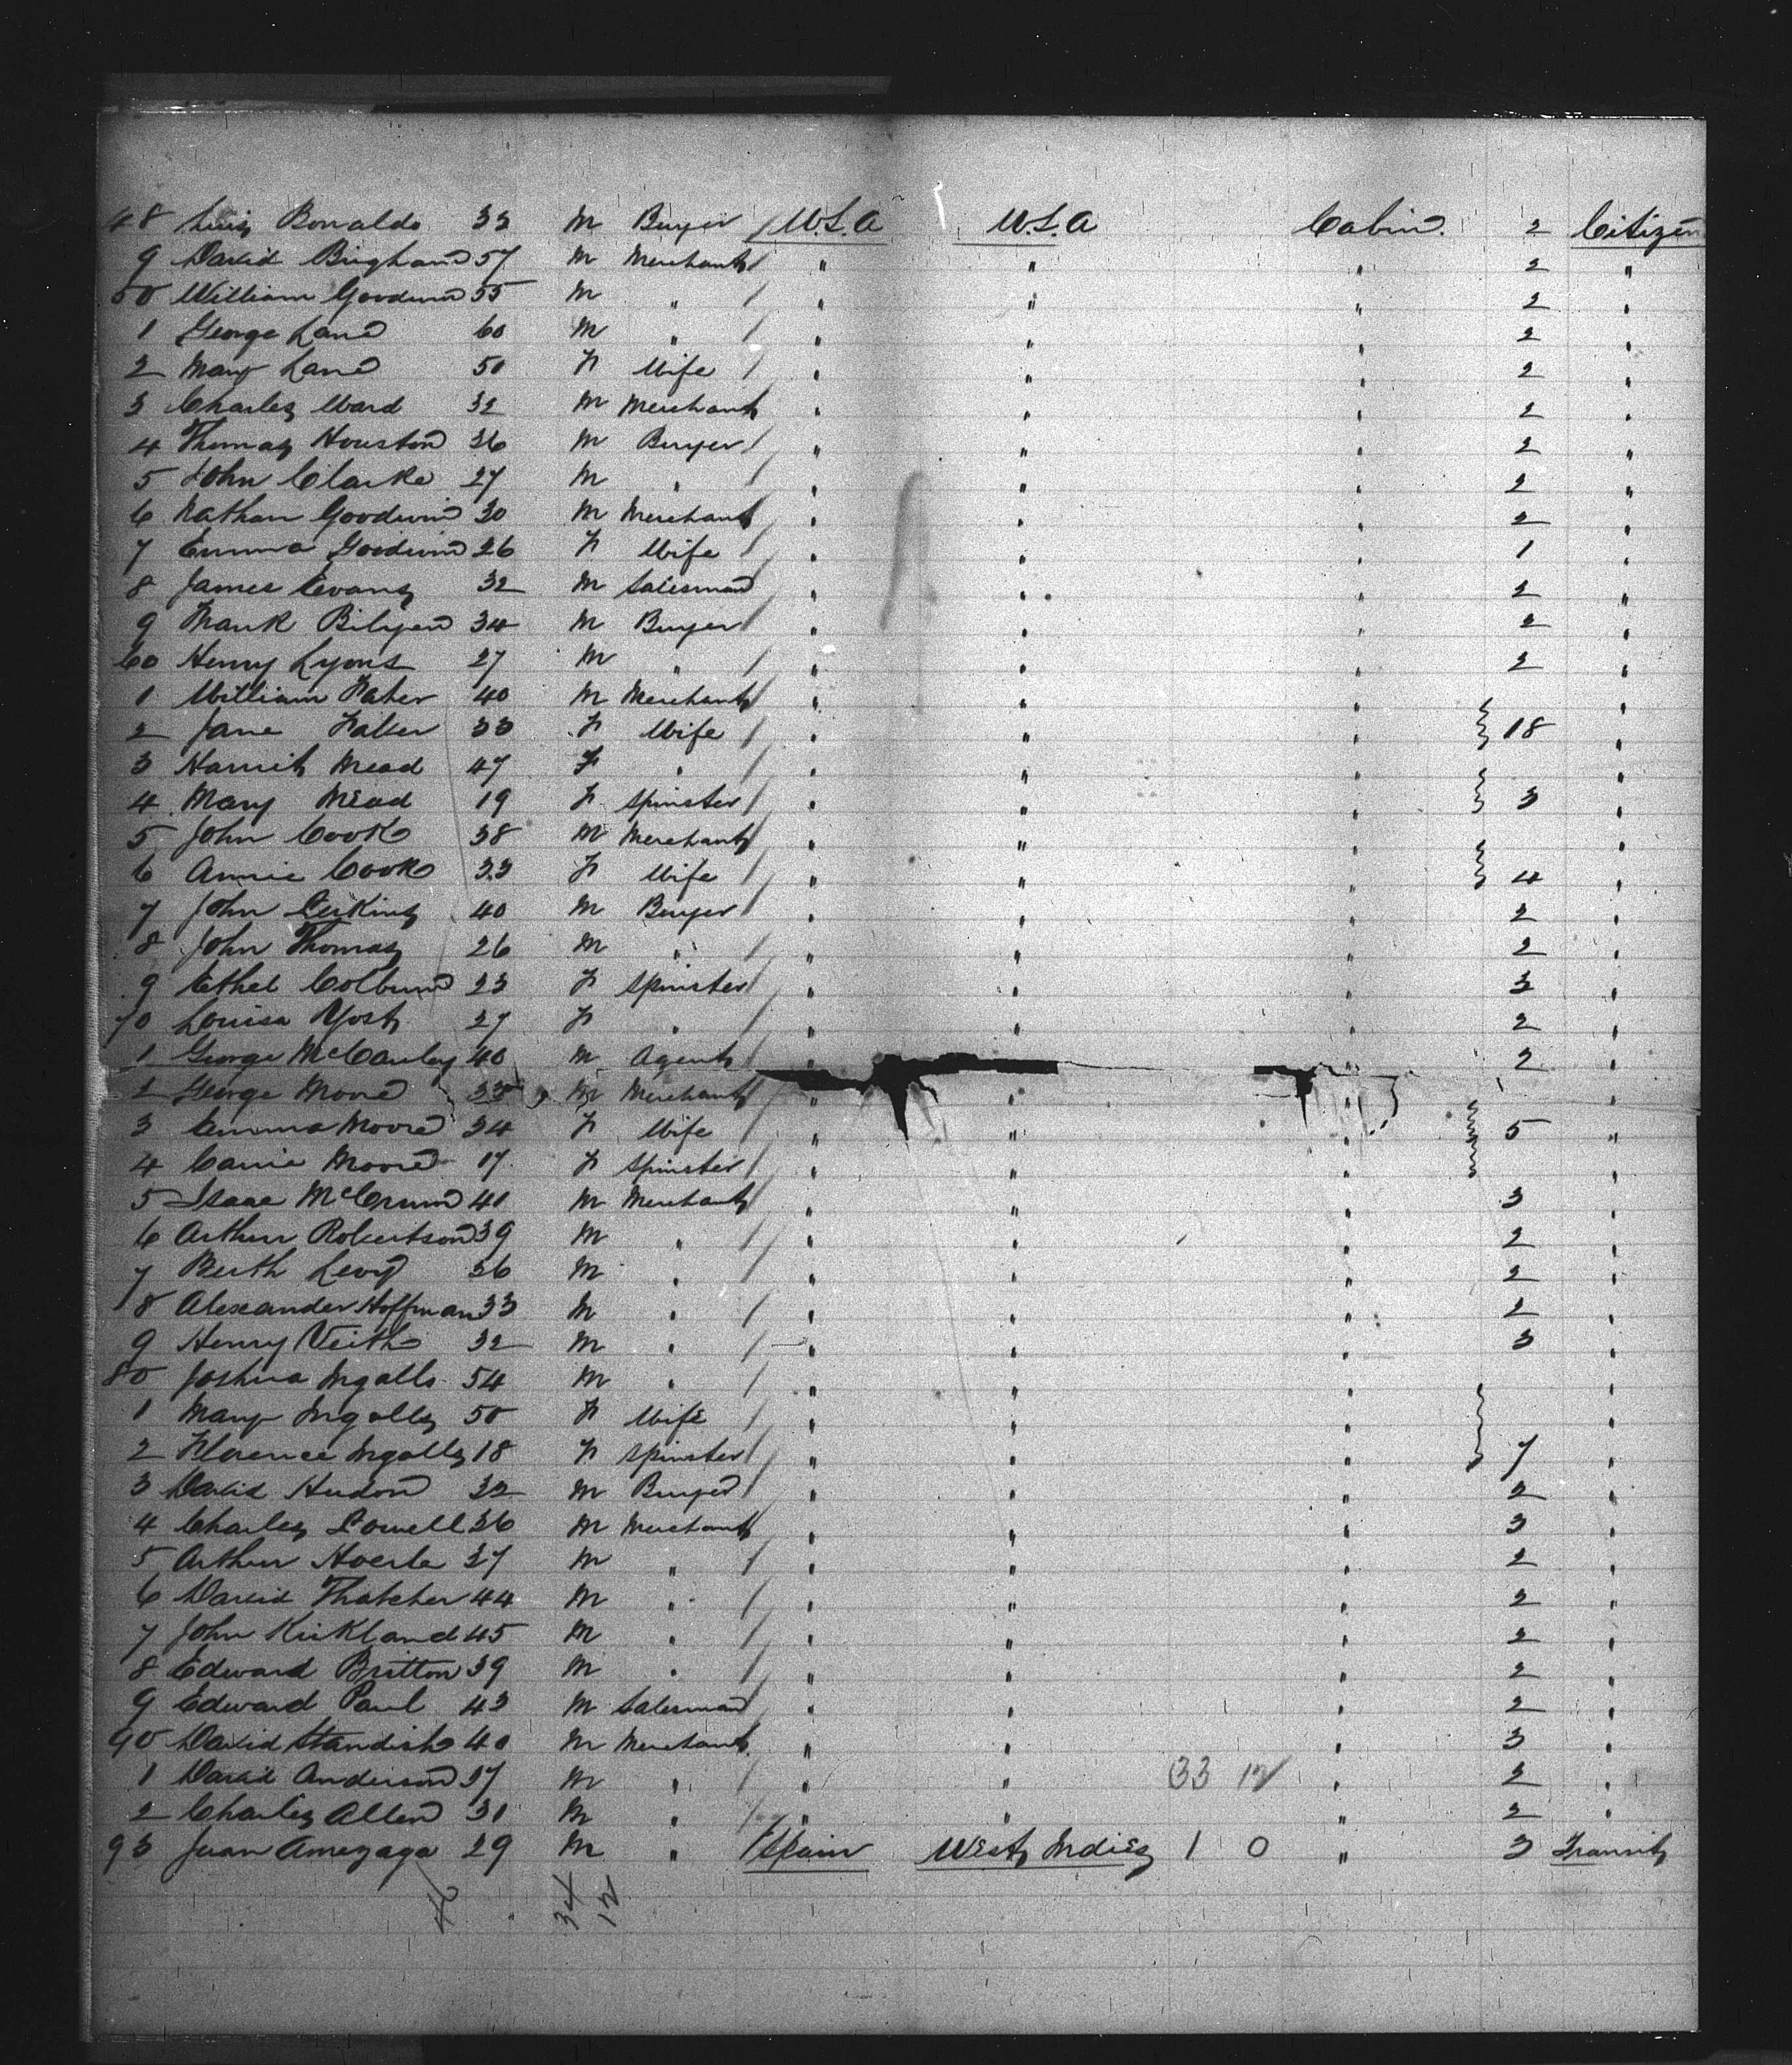 48 Luis Bonaldo 33 M Buyer / U.S.A U.S.A Cabin. 2 Citizen
9 David Brigham 57 M Merchant / " " " 2 "
50 William Goodwin 55 M " / " " " 2 "
1 George Lane 60 M " / " " " 2 "
2 Mary Lane 50 F Wife / " " " 2 "
3 Charles Ward 32 M Merchant " " " 2 "
4 Thomas Houston 36 M Buyer / " " " 2 "
5 John Clarke 27 M " / " " " 2 "
6 Nathan Goodwin 30 M Merchant / " " " 2 "
7 Emma Goodwin 26 F Wife / " " " 1 "
8 James Evans 32 M Salesman / " " " 2 "
9 Frank Bilyen 34 M Buyer / " " " 2 "
60 Henry Lyons 27 M " / " " " 2 "
1 William Faher 40 M Merchant / " " " "
2 Jane Faher 33 F Wife / " " " 18 "
3 Harriet Mead 47 F " / " " " "
4 Mary Mead 19 F Spinster / " " " 3 "
5 John Cook 38 M Merchant / " " " "
6 Annie Cook 33 F Wife / " " " 4 "
7 John Perkins 40 M Buyer / " " " 2 "
8 John Thomas 26 M " / " " " 2 "
9 Ethel Colburn 23 F Spinster / " " " 3 "
70 Louisa Yost 27 F " / " " " 2 "
1 George McCauley 40 M Agent / " " 2 "
2 George Moore 35 M Merchant / " " " "
3 Emma Moore 34 F Wife / " " " 5 "
4 Carrie Moore 17 F Spinster / " " " "
5 Isaac McCrum 41 M Merchant / " " " 3 "
6 Arthur Robertson 39 M " / " " " 2 "
7 Berth Levy 36 M " / " " " 2 "
8 Alexander Hoffman 33 M " / " " " 2 "
9 Henry Veith 32 M " / " " " 3 "
80 Joshua Ingalls 54 M " / " " " "
1 Mary Ingalls 50 F Wife / " " " "
2 Florence Ingalls 18 F Spinster / " " " 7 "
3 David Hudon 32 M Buyer / " " " 2 "
4 Charles Lowell 36 M Merchant / " " " 3 "
5 Arthur Hoerle 37 M " / " " " 2 "
6 David Thatcher 44 M " / " " " 2 "
7 John Kirkland 45 M " / " " " 2 "
8 Edward Britton 39 M " / " " " 2 "
9 Edward Paul 43 M Salesman / " " " 2 "
90 David Standish 40 M Merchant " " " 3 "
1 David Anderson 37 M " / " " 33 12 " 2 "
2 Charles Allen 31 M " / " " " 2 "
93 Juan Amezaga 29 M " / Spain West Indies 1 0 " 3 Transit
34 12